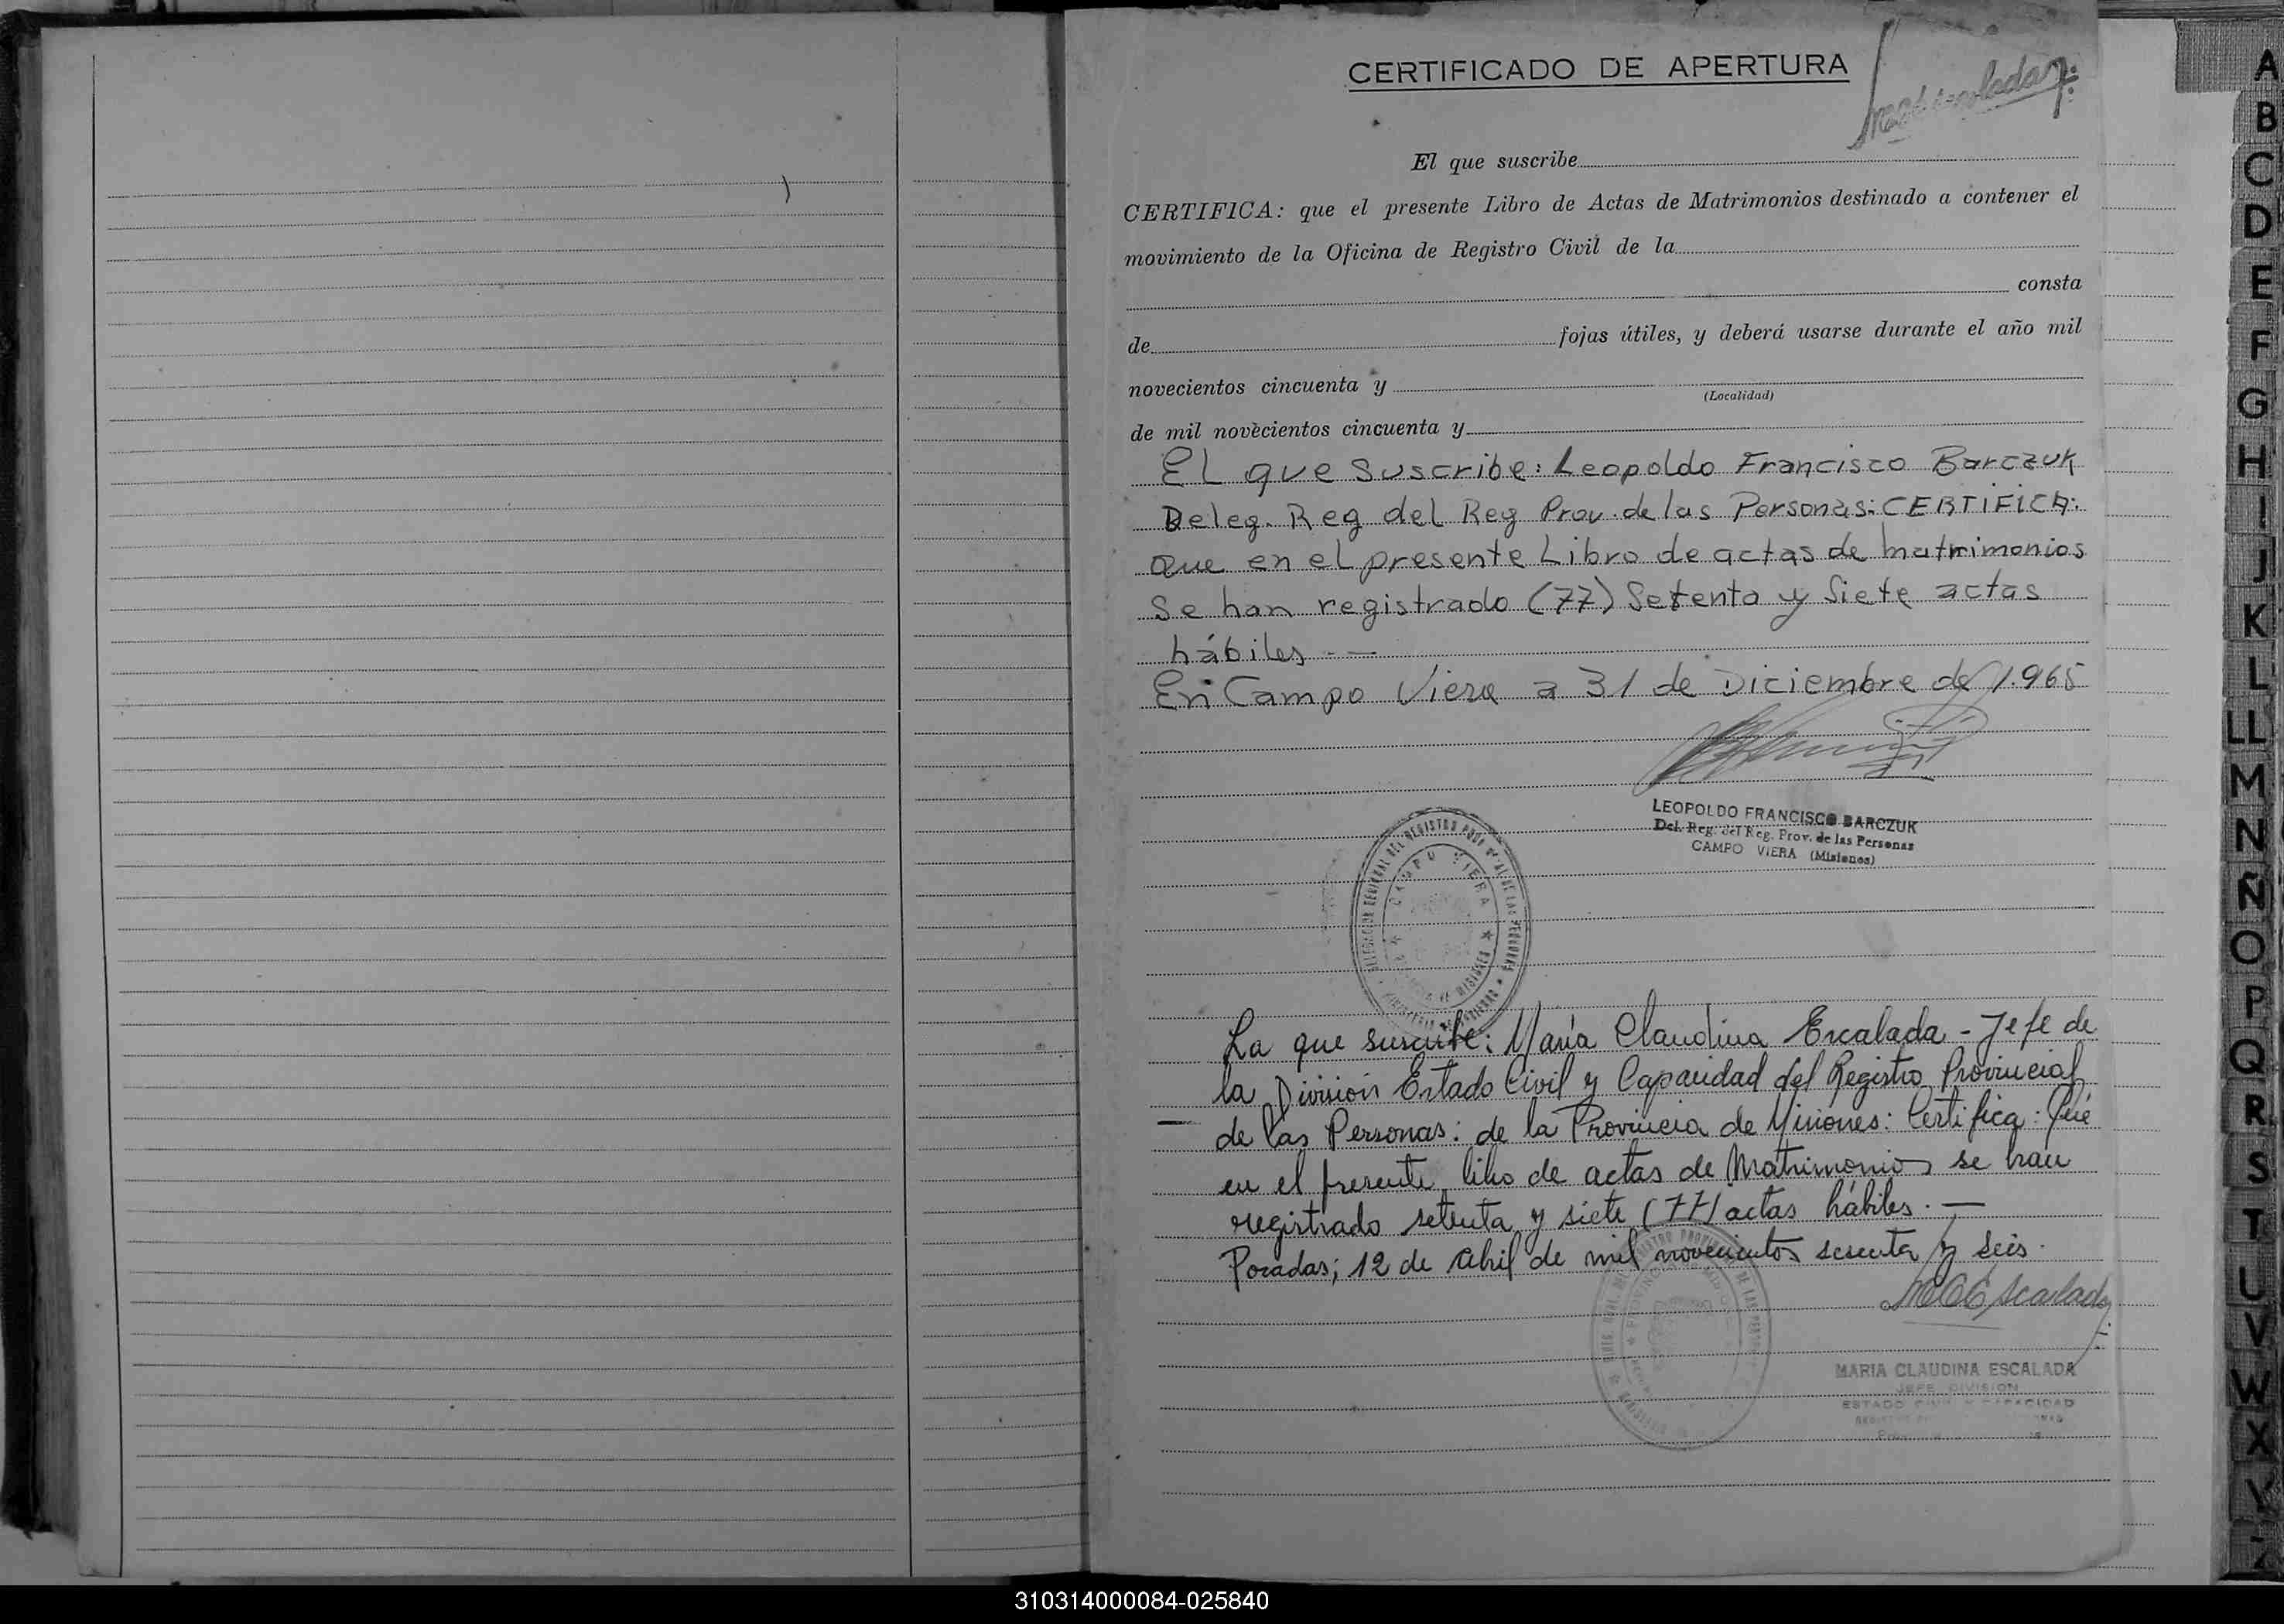 CERTIFICADO DE APERTURA
El que suscribe
CERTIFICA: que el presente Libro de Actas de Matrimonios destinado a contener el
movimiento de la Oficina de Registro Civil de la
consta
de fojas útiles, y deberá usarse durante el año mil
novecientos cincuenta y
(Localidad)
de mil novecientos cincuenta y
El que suscribe: Leopoldo Francisco Barczuk
Deleg. Reg del Reg Prov. de las Personas: CERTIFICA:
Que en el presente Libro de actas de matrimonios
se han registrado (77) Setenta y Siete actas
hábiles
En Campo Viera a 31 de Diciembre de 1.965
LEOPOLDO FRANCISCO BARCZUK
Del. Reg. del Reg. Prov. de las Personas
CAMPO VIERA (Misiones)
CAMPO VIERA
La que suscribe: María Claudina Escalada - Jefe de
la División Estado Civil y Capacidad del Registro Provincial
de las Personas: de la Provincia de Misiones: Certifica: Que
en el presente libro de actas de Matrimonios se han
registrado setenta y siete (77) actas hábiles. —
Posadas; 12 de Abril de mil novecientos sesenta y seis.
MCEscalada
MARIA CLAUDINA ESCALADA
JEFE DIVISION
ESTADO CIVIL Y CAPACIDAD
A
B
C
D
E
F
G
H
I
J
K
L
LL
M
N
Ñ
O
P
Q
R
S
T
U
V
W
X
Y
Z
310314000084-025840